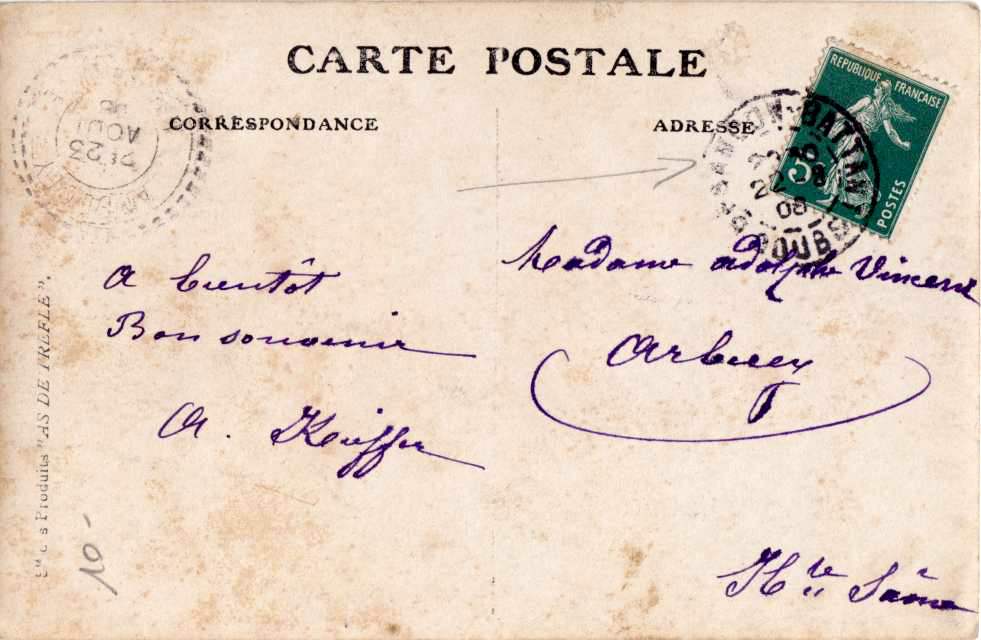 CARTE POSTALE
CORRESPONDANCE
ADRESSE
REPUBLIQUE FRANÇAISE
POSTES
5c
BESANCON-BATTANT
22-8
08
DOUBS
23
AOUT
A bientôt
Bon souvenir
A. Kieffer
Madame Adolphe Vincent
Arbecey
Hte Saône
Produits "AS DE TREFLE".
10-